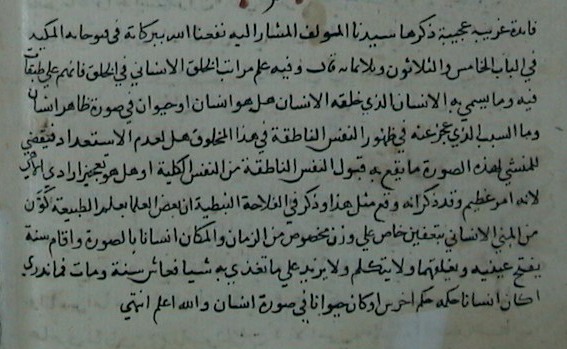 فايدة غريبة عجيبة ذكرها سيدنا المولف المشار اليه نفعنا الله ببركاته في فتوحاته المكية
في الباب الخامس والثلاثون وثلاثمائه قال وفيه علم مراتب الخلق الانساني في الخلق فانهم علي طبقات
فيه وما يسمي به الانسان الذي خلقه الانسان هل هو انسان او حيوان في صورة ظاهر انسان
وما السبب الذي عجز عنه في ظهور النفس الناطقة في هذا المخلوق هل لعدم الاستعداد فيقضي
للمنشي لهذه الصورة ما يقع به قبول النفس الناطقة من النفس الكلية او هل هو تعجيز ارادي الهي
لانه امر عظيم وقد ذكر انه وقع مثل هذا وذكر في الفلاحة النبطية ان بعض العلما بعلم الطبيعة كون
من المني الانساني بتعفين خاص علي وزن مخصوص من الزمان والمكان انسانا بالصورة واقام سنة
يفتح عينيه ويغلقهما ولا يتكلم ولا يزيد علي ما تغذي به شيا فعاش سنة ومات فما ندري
اكان انسانا حكمه حكم اخرس او كان حيوانا في صورة انسان والله اعلم انتهي